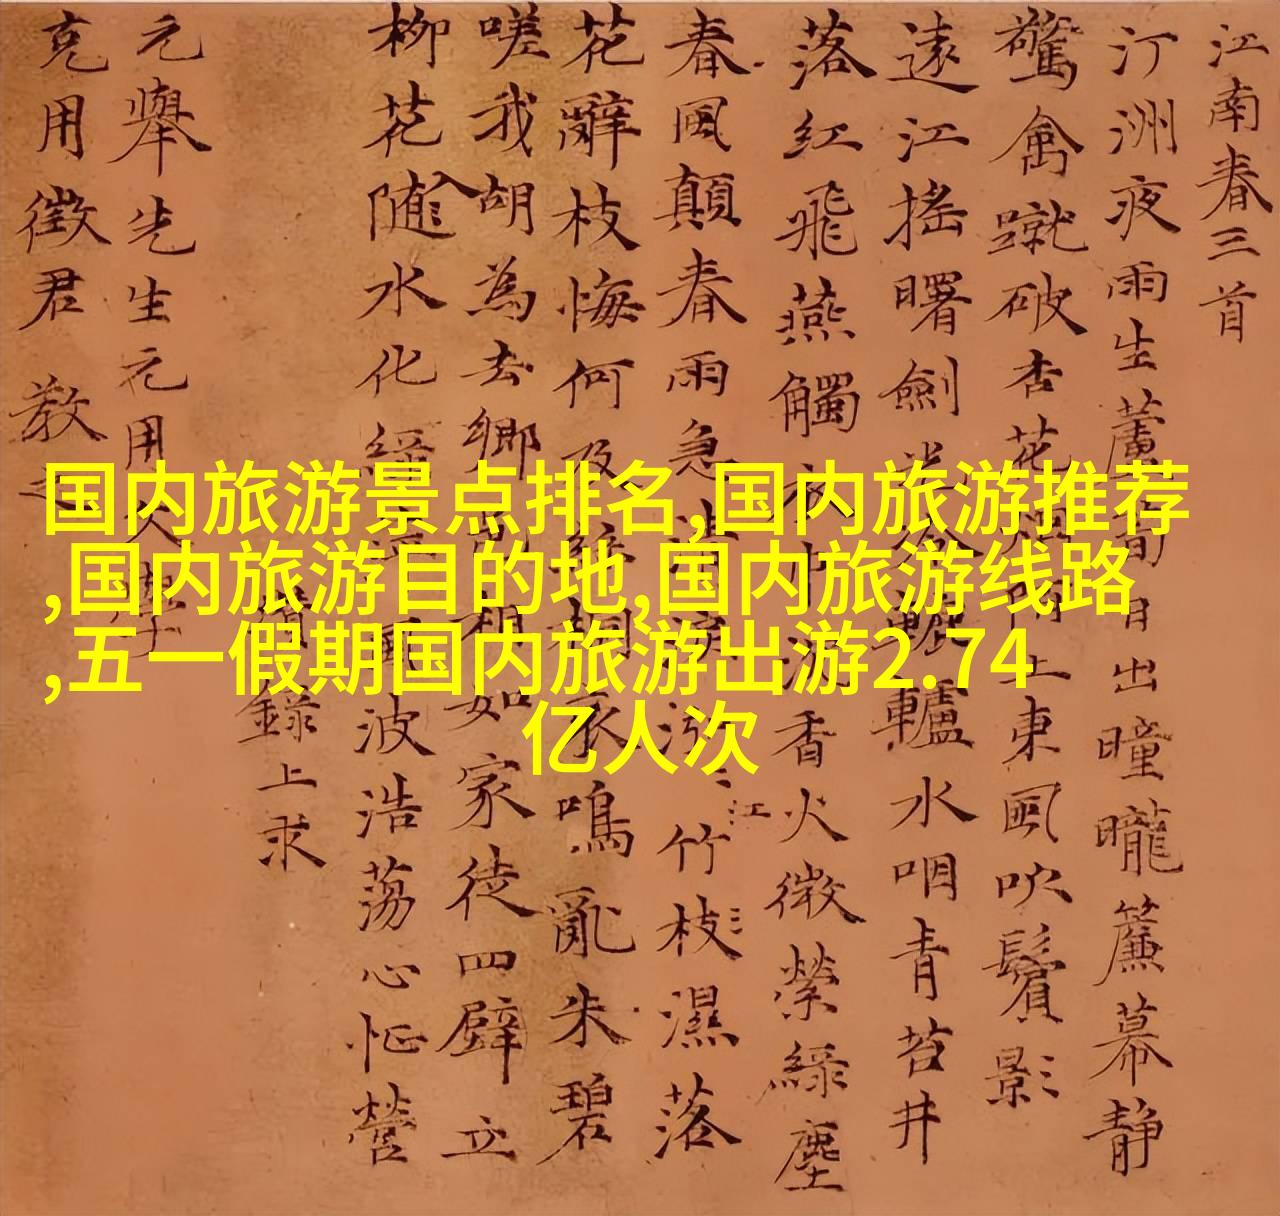 江南春三首
汀洲夜雨生蘆筍日出曈曨簾幕靜
驚禽蹴破杏花煙陌上東風吹鬢影
遠江搖曙劍光轆轤水咽青苔井
落紅飛燕觸衣巾沉香火微縈綠塵
春風顛春雨急清江竹枝濕落
花辭枝悔何及絲桐哀鳴亂朱碧
嗟我胡為去鄉邑相如家徒四壁立
柳花入隨水化綠萍風波浩蕩心怔營
錄上求
元舉先生元用人
克用徵君 教之
国内旅游景点排名,国内旅游推荐
,国内旅游目的地,国内旅游线路
,五一假期国内旅游出游2.74
亿人次